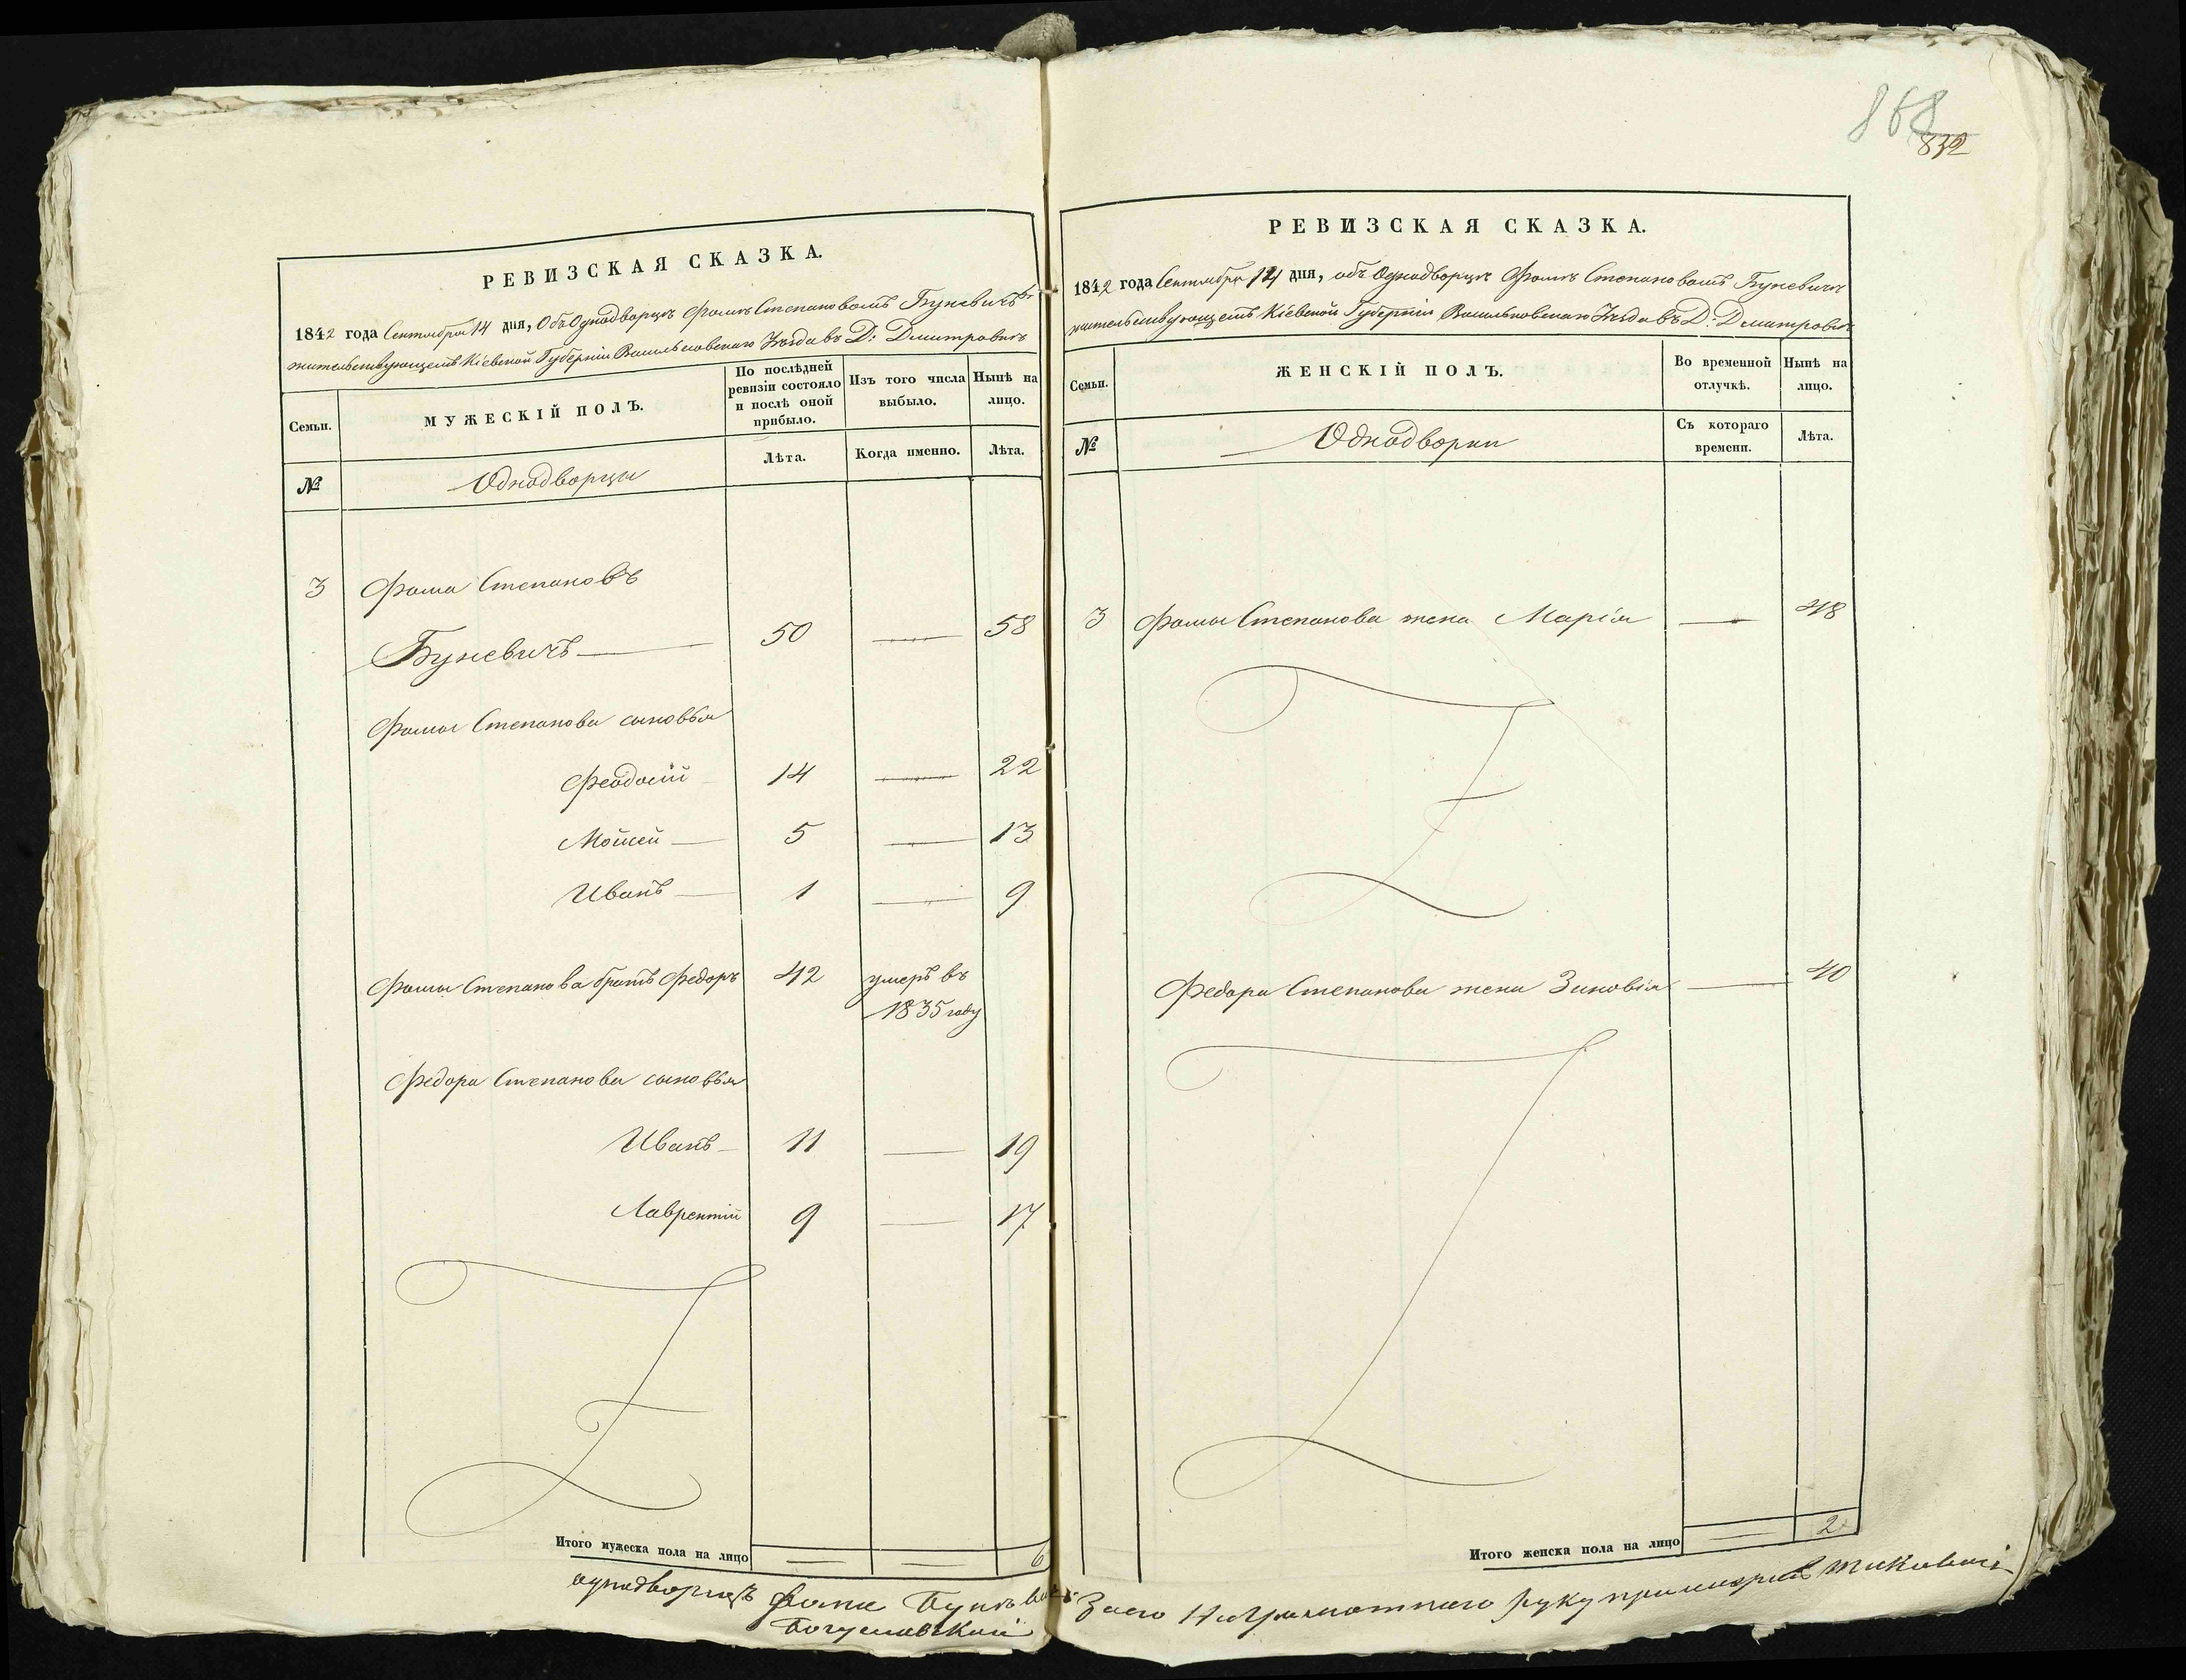 868
832
РЕВИЗСКАЯ СКАЗКА.
1842 года Сентября 14 дня, Объ Однодворцѣ Фомѣ Степановомъ Буневичѣ
жительствующемъ Кіевской Губерніи Васильковскаго Уѣзда въ Д: Дмитровкѣ
Семьи.
МУЖЕСКІЙ ПОЛЪ.
По послѣдней ревизіи состояло и послѣ оной прибыло.
Изъ того числа выбыло.
Нынѣ на лицо.
№
Однодворцы
Лѣта.
Когда именно.
Лѣта.
3 Фома Степановъ
Буневичъ 50 — 58
Фомы Степанова сыновья
Феодосій 14 — 22
Мойсей 5 — 13
Иванъ 1 — 9
Фомы Степанова братъ Федоръ 42 умеръ въ
1835 году
Федора Степанова сыновья
Иванъ 11 — 19
Лаврентій 9 — 17
Итого мужеска пола на лицо 6
РЕВИЗСКАЯ СКАЗКА.
1842 года Сентября 14 дня, объ Однодворцѣ Фомѣ Степановомъ Буневичѣ
жительствующемъ Кіевской Губерніи Васильковскаго Уѣзда въ Д: Дмитровкѣ
Семьи.
ЖЕНСКІЙ ПОЛЪ.
Во временной отлучкѣ.
Нынѣ на лицо.
№
Однодворки
Съ котораго времени.
Лѣта.
3 Фомы Степанова жена Марія — 48
Федора Степанова жена Зиновія — 40
Итого женска пола на лицо 2
однодворецъ Фома
За его Неграмотнаго руку
Богуславскій